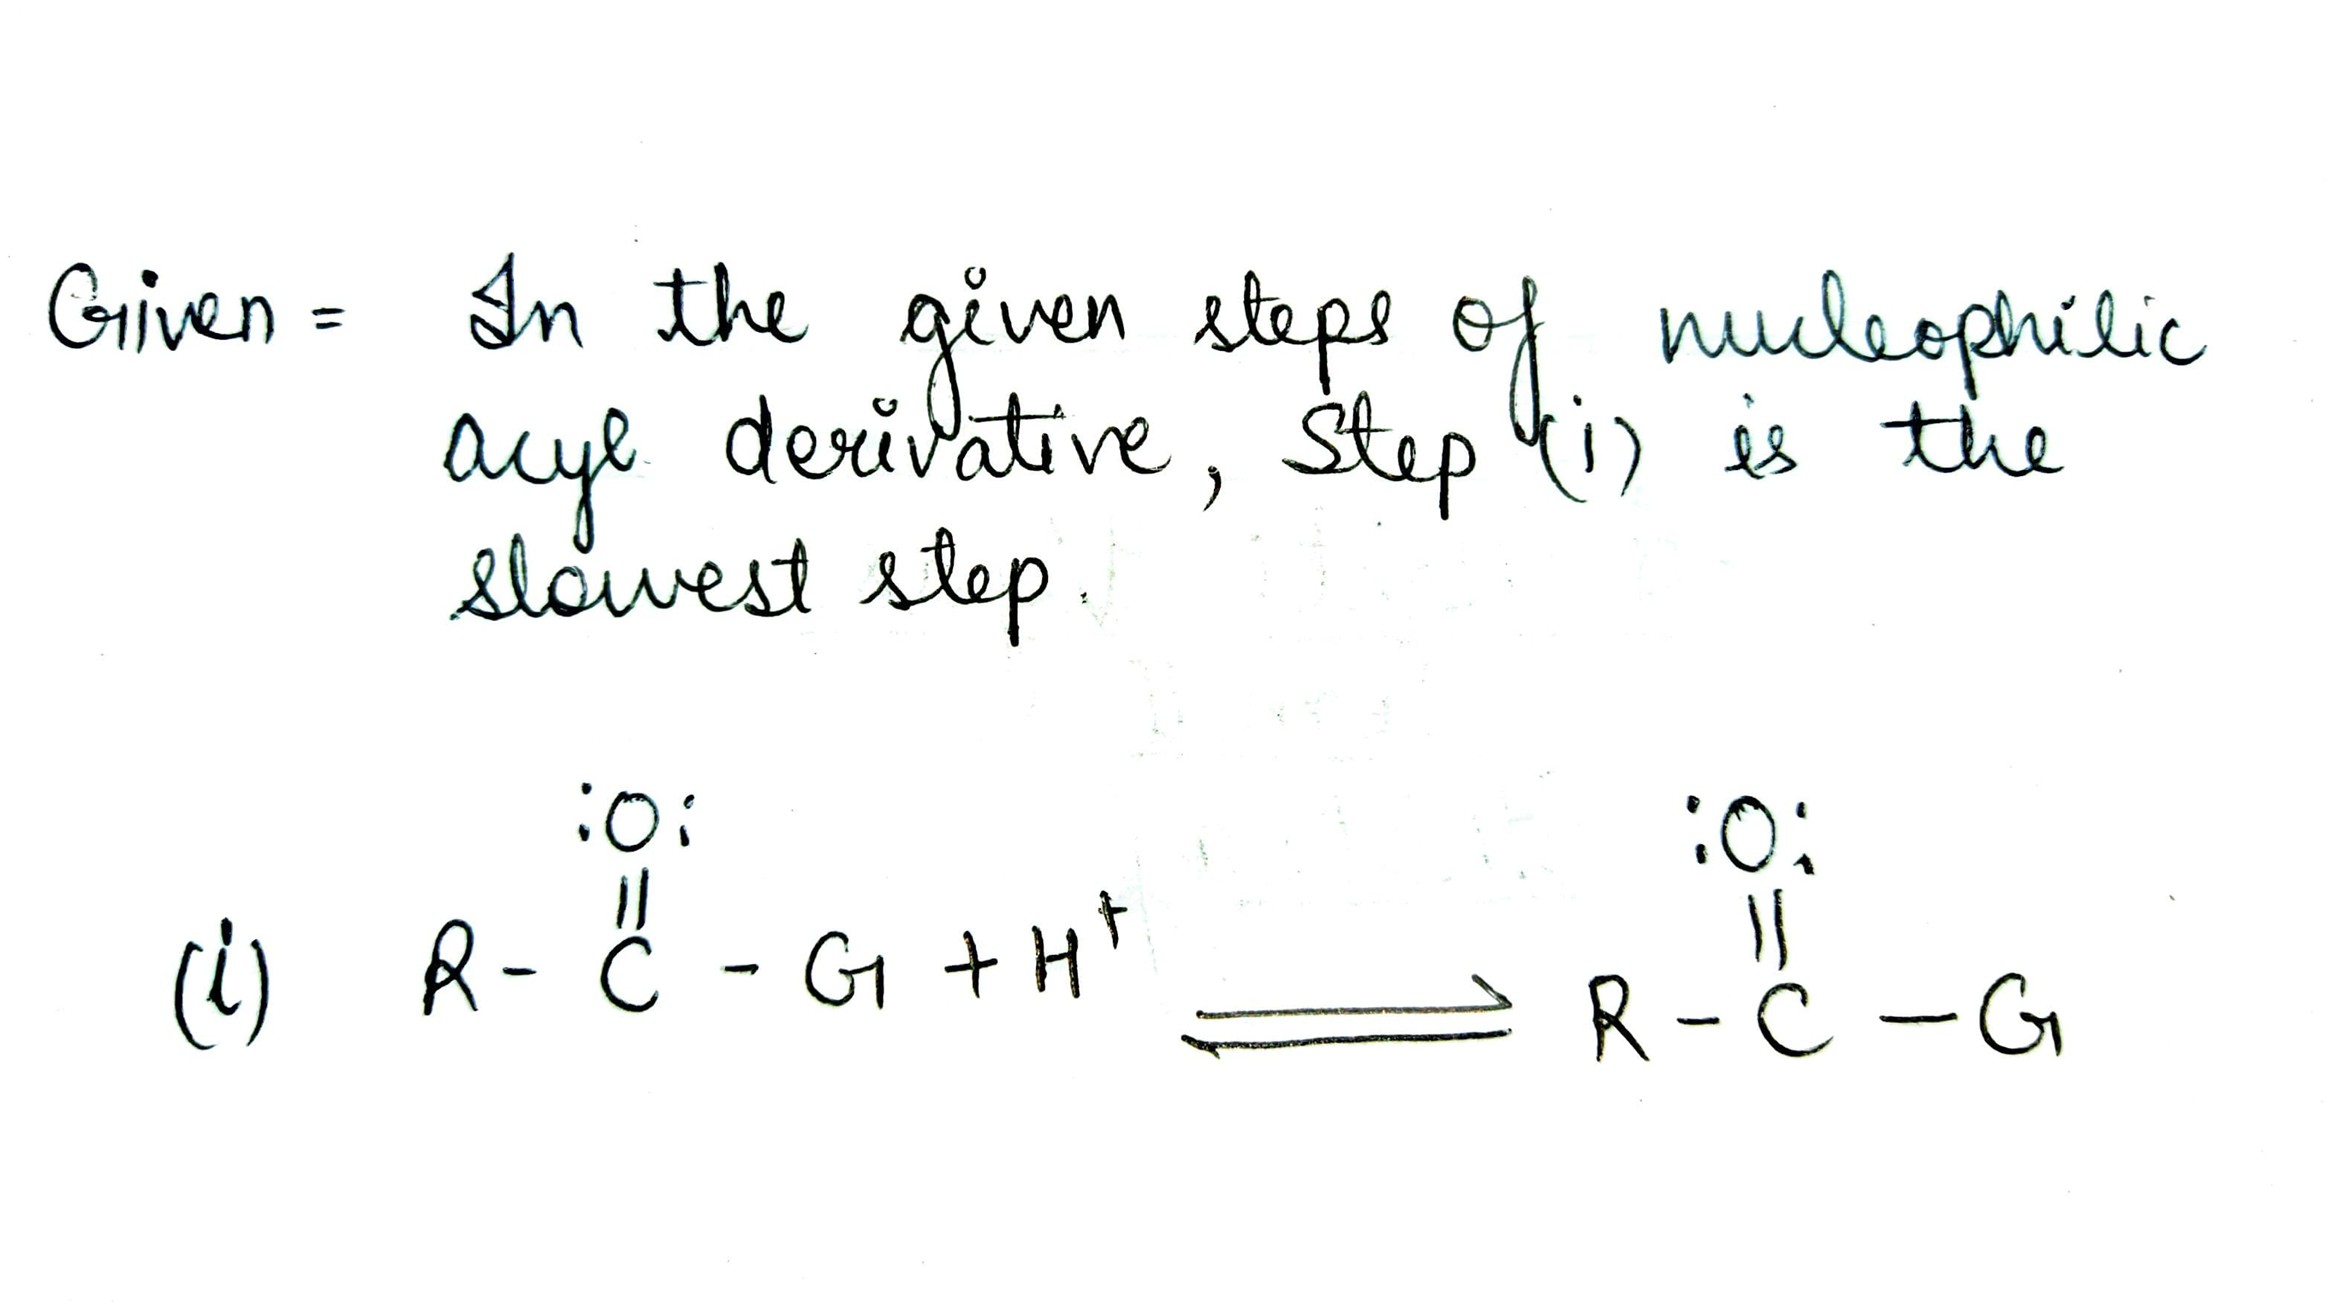 Given = In the given steps of nucleophilic
acyl derivative, Step (i) is the
slowest step.
:O: :O:
|| ||
(i) R - C - G + H⁺ ⇌ R - C - G